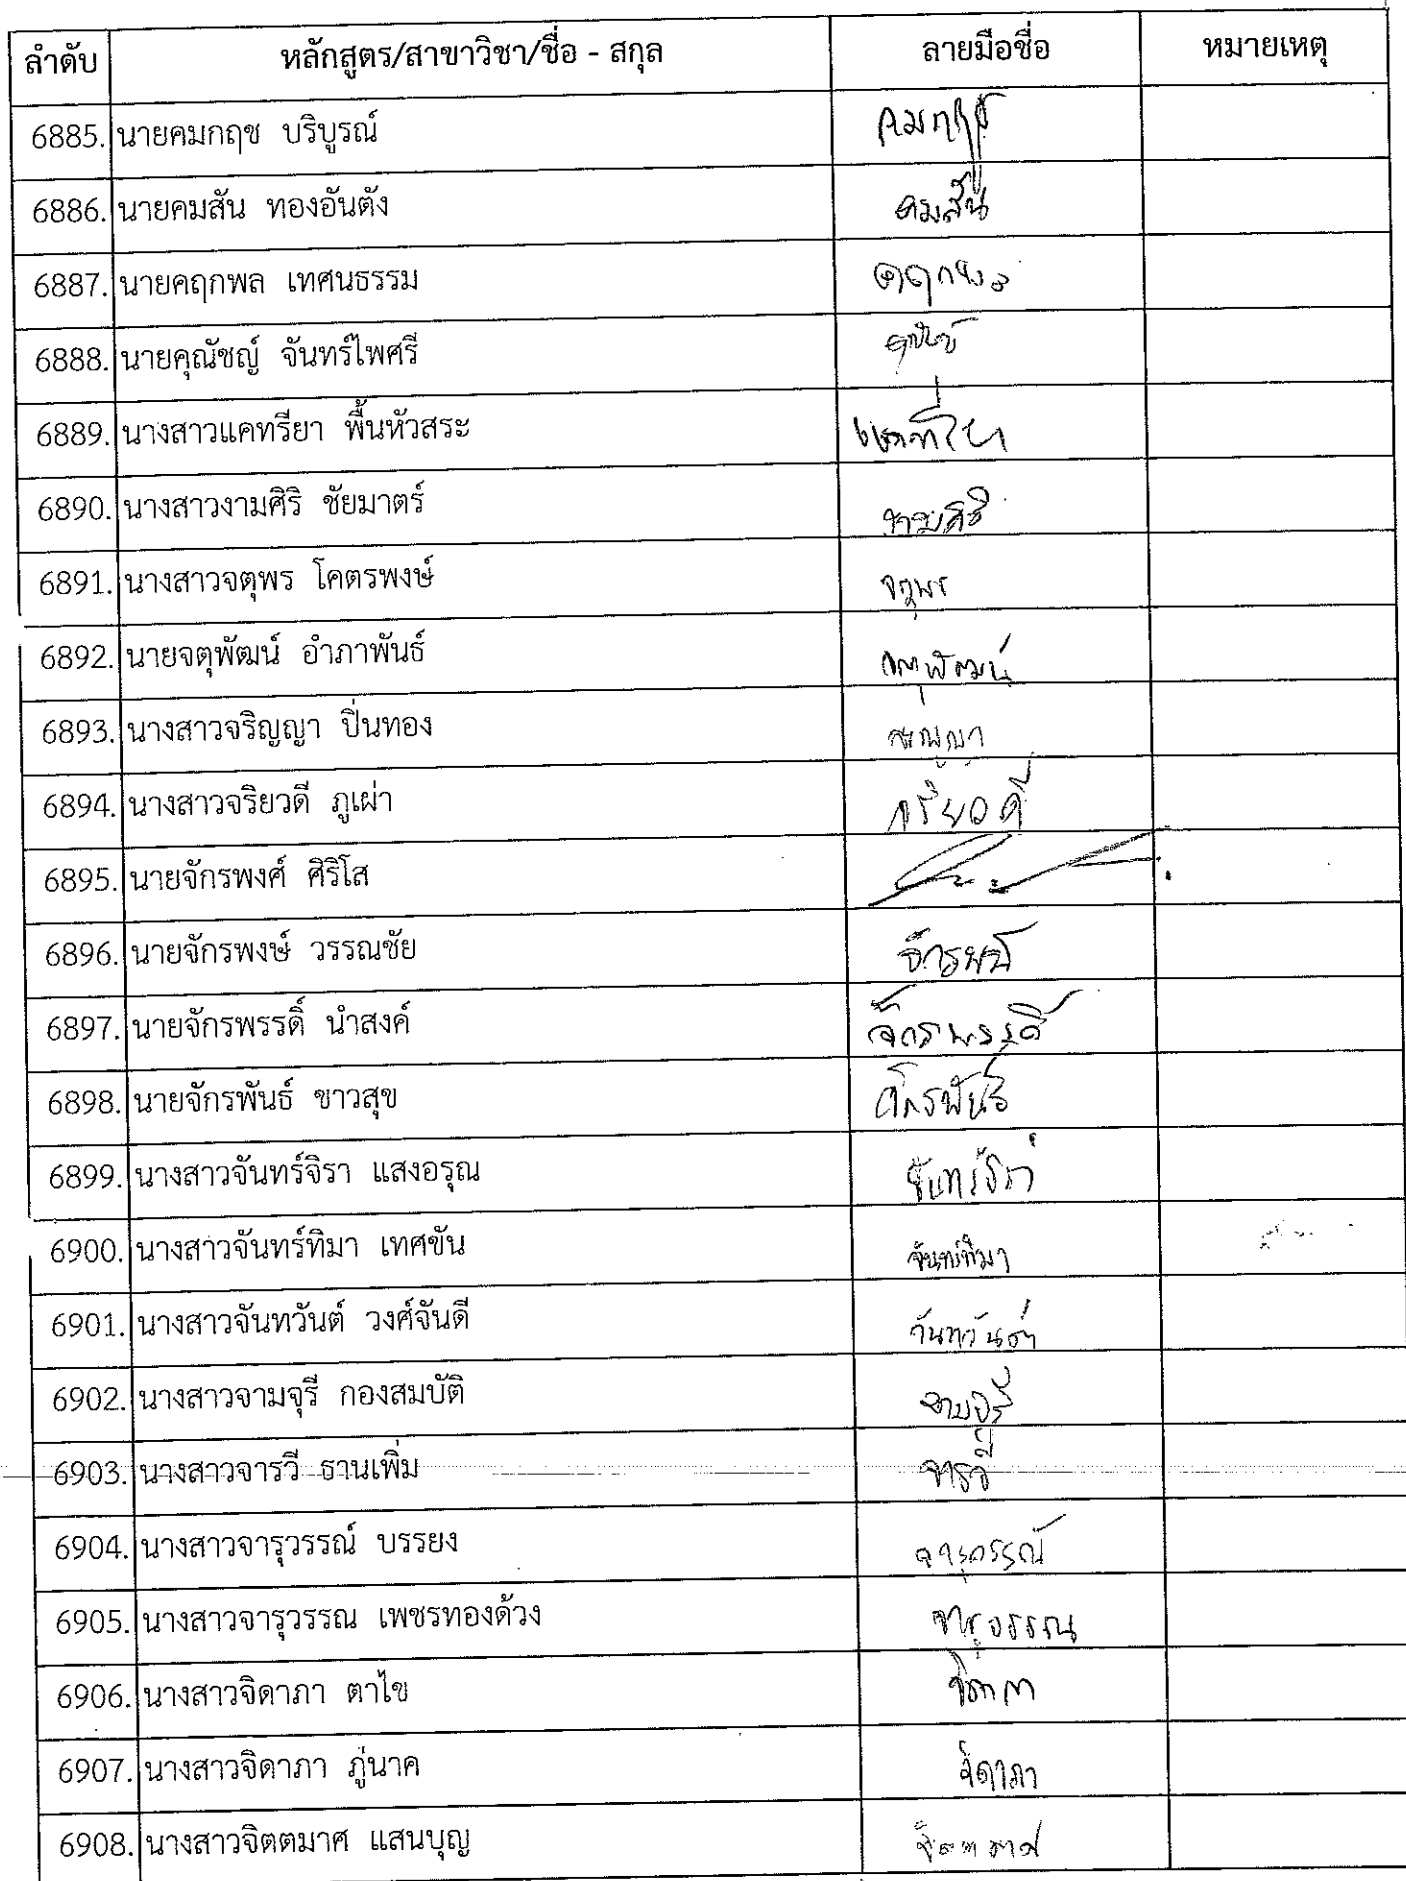 ลำดับ หลักสูตร/สาขาวิชา/ชื่อ - สกุล ลายมือชื่อ หมายเหตุ
6885. นายคมกฤช บริบูรณ์ คมกฤช
6886. นายคมสัน ทองอันตัง คมสัน
6887. นายคฤกพล เทศนธรรม คฤกพล
6888. นายคุณัชญ์ จันทร์ไพศรี
6889. นางสาวแคทรียา พื้นหัวสระ แคทรียา
6890. นางสาวงามศิริ ชัยมาตร์ งามศิริ
6891. นางสาวจตุพร โคตรพงษ์ จตุพร
6892. นายจตุพัฒน์ อำภาพันธ์ จตุพัฒน์
6893. นางสาวจริญญา ปิ่นทอง จริญญา
6894. นางสาวจริยวดี ภูเผ่า จริยวดี
6895. นายจักรพงศ์ ศิริโส
6896. นายจักรพงษ์ วรรณชัย จักรพงษ์
6897. นายจักรพรรดิ์ นำสงค์ จักรพรรดิ์
6898. นายจักรพันธ์ ขาวสุข จักรพันธ์
6899. นางสาวจันทร์จิรา แสงอรุณ จันทร์จิรา
6900. นางสาวจันทร์ทิมา เทศขัน จันทร์ทิมา
6901. นางสาวจันทวันต์ วงศ์จันดี จันทวันต์
6902. นางสาวจามจุรี กองสมบัติ จามจุรี
6903. นางสาวจารวี ธานเพิ่ม จารวี
6904. นางสาวจารุวรรณ์ บรรยง จารุวรรณ์
6905. นางสาวจารุวรรณ เพชรทองด้วง จารุวรรณ
6906. นางสาวจิดาภา ตาไข จิดาภา
6907. นางสาวจิดาภา ภู่นาค จิดาภา
6908. นางสาวจิตตมาศ แสนบุญ จิตตมาศ